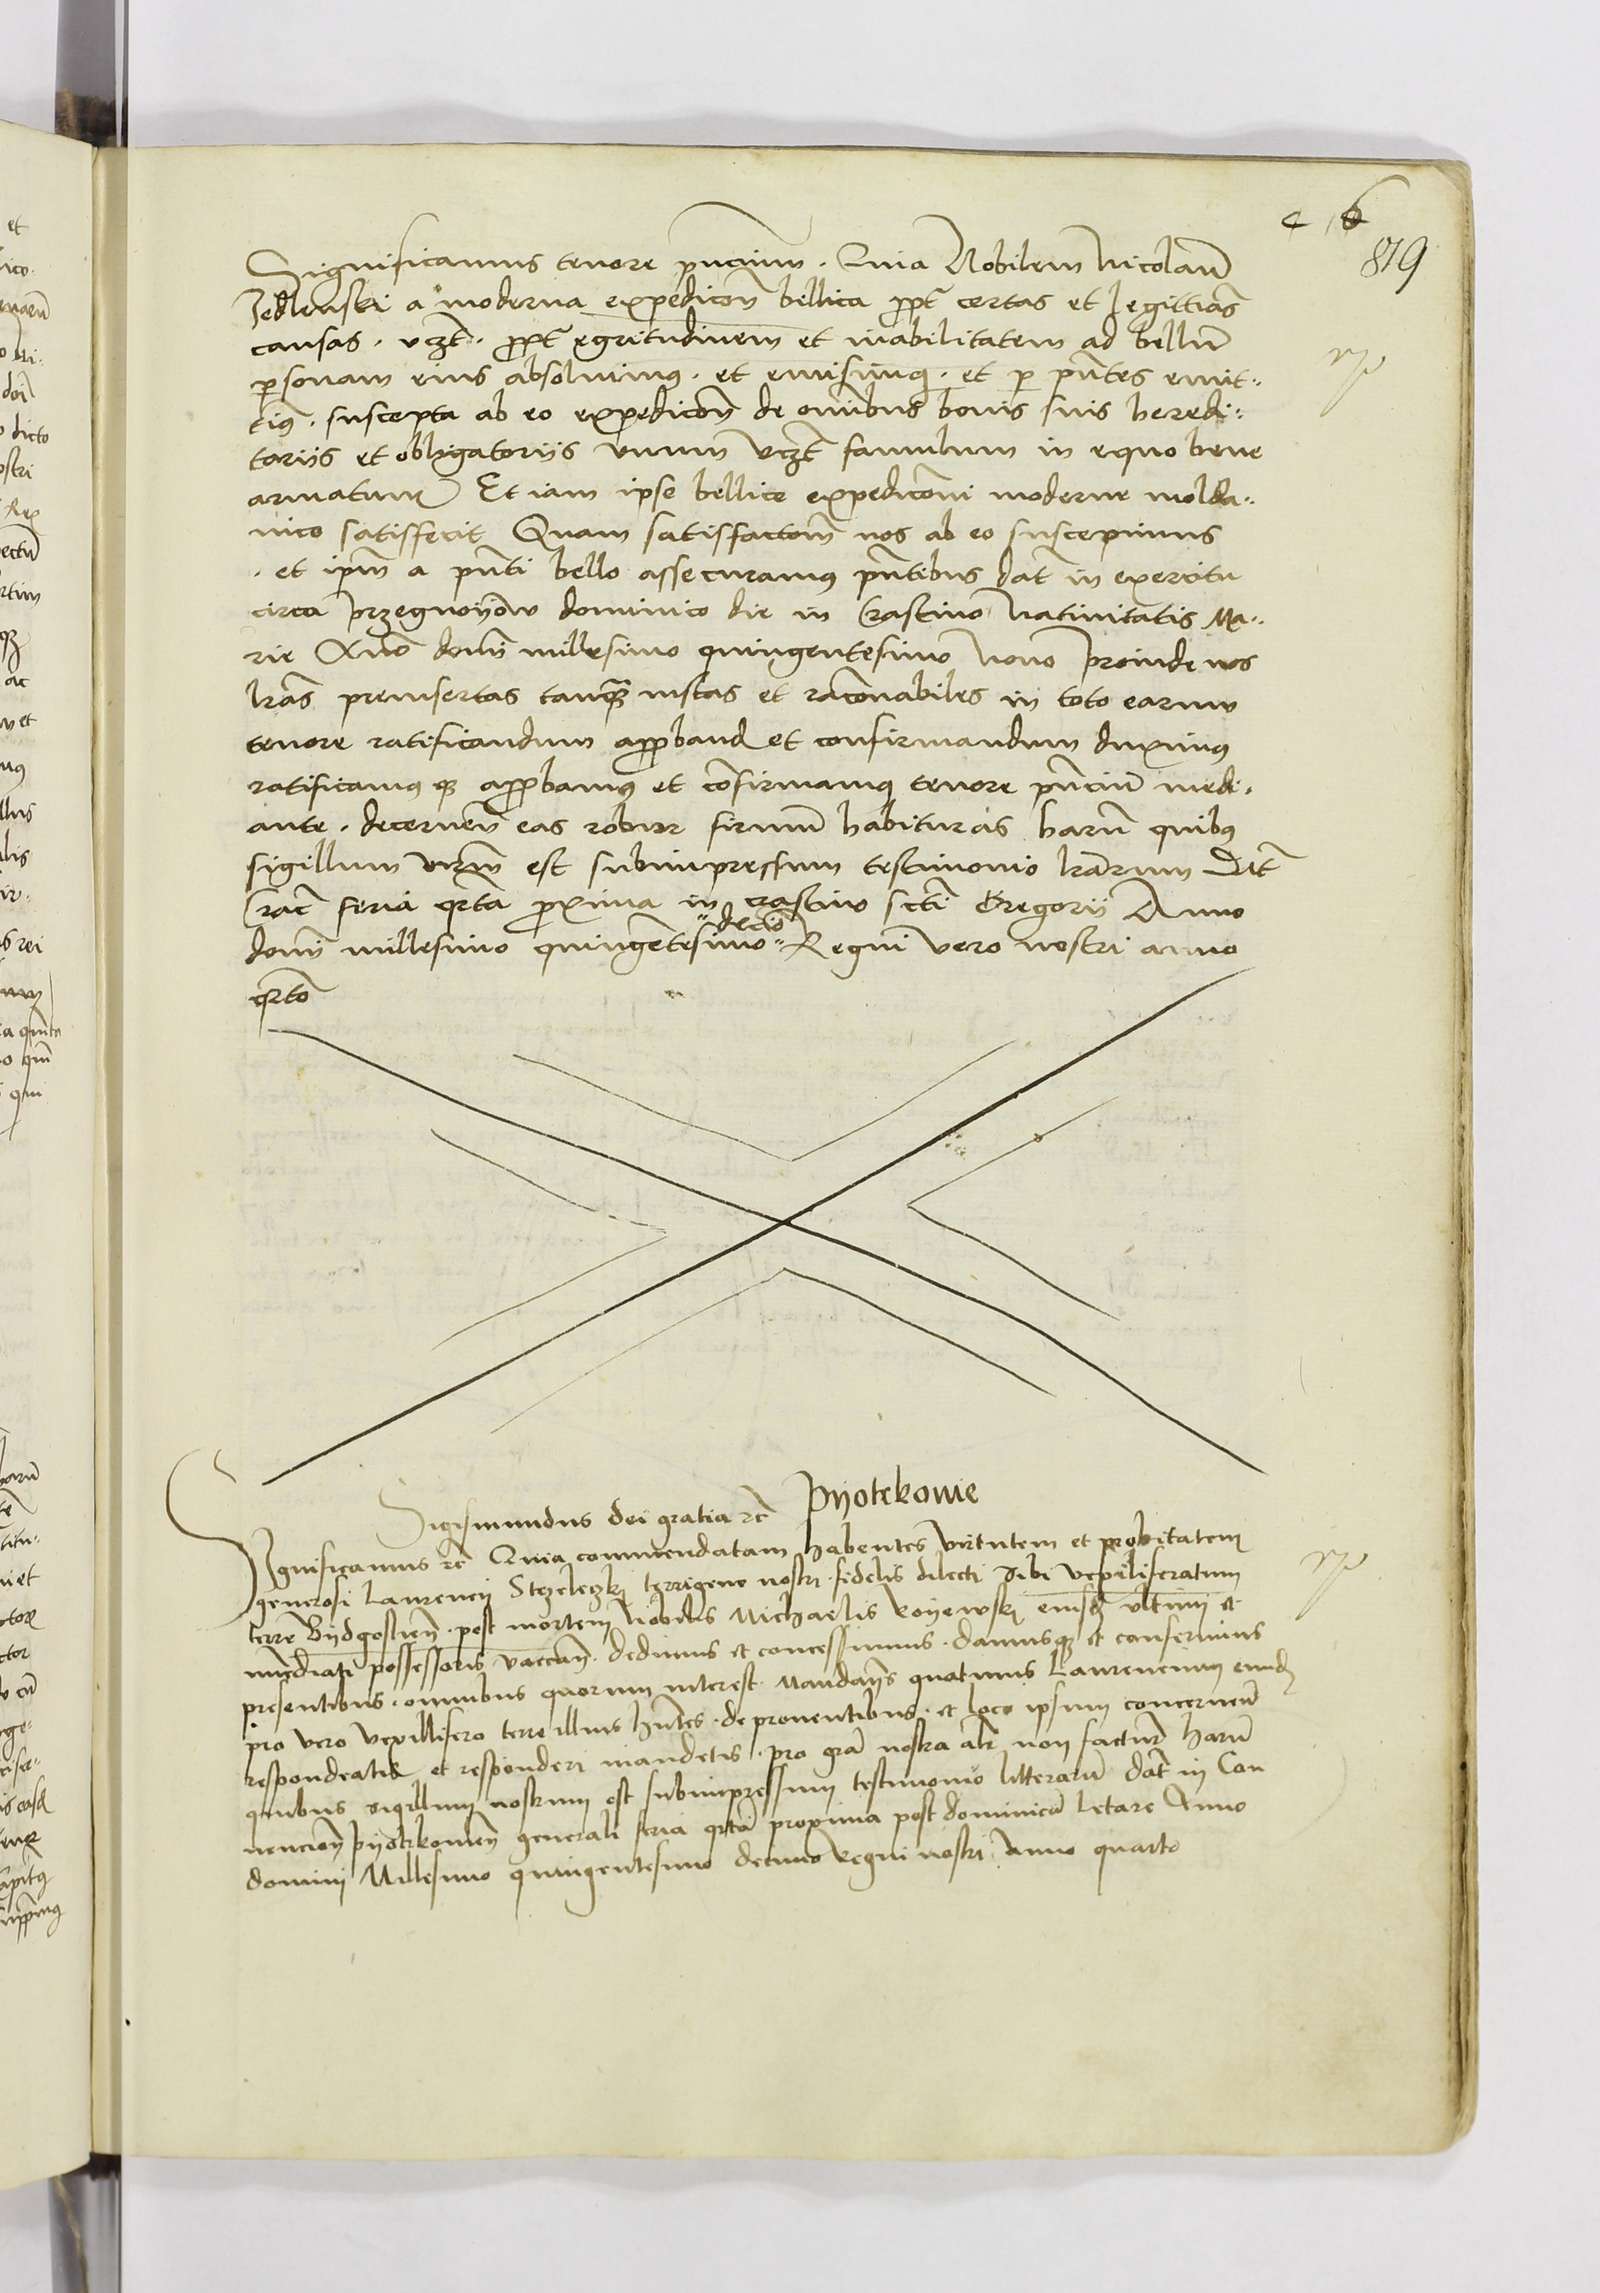 c 16
819
Significamus tenore pñcium. Quia Nobilem Nicolaũ
Jedlenski a moderna expedicoñ bellica ꝓpt certas et legittiãs
causas. vczt. ꝓpt egritudinem et inabilitatem ad bellũ
psonam eius absoluimus. et emisimus. et p pñtes emit..
timus. suscepta ab eo expedicoñ de omibus bonis suis heredi..
tariis et obligatoriis vnum vczt famulum in equo bene
armatum Et iam ipse bellice expedicõni moderne molda..
uico satisfecit Quam satisfactõm nos ab eo suscepimus
. et ipm̃ a pñti bello assecuramus pñtibus dat in exercitu
circa przegnoyow dominico die in Crastino Natiuitatis Ma..
rie Anno domi millesimo quingentesimo nono Proinde nos
lrãs preinsertas tanꝗ iustas et racõnabiles in toto earum
tenore ratificandum approband et confirmandum duximus
ratificamusꝗ approbamus et cõfirmamus tenore pñcium medi.
ante. decernen eas robur firmũ habituras harũ quibus
sigillum nrm̃ est subimpressum testimonio lrãrum Dat
Crac feria qrta proxima in crastino scti Gregorii Anno
domi millesimo quingẽtesimo decimo Regni vero nostri anno
qrto
Pyotrkowie
Sigismundus dei gratia rc̃
Significamus rc̃ Quia commendatam habentes virtutem et probitatem
generosi Laurencij Strzeleczkj terrigene nostri fidelis dilecti sibi vexiliferatum
terre Bydgostieñ. post mortem nobilis Michaelis koyewskj eiusd vltimi et
inmediati possessoris vacañ. dedimus et concessimus. damusꝗ et conferimus
presentibus. omnibus quorum interest. Mandañs quatinus Laurencium eundẽ
pro vero vexillifero terre illius hñtes. de prouentibus. et loco ipsum concerneñ
respondeatis et responderi mandetis. pro grã nostra altr non factur̃ harũ
quibus sigillum nostrum est subimpressum testimonio litterarũ dat in Con
uencioñ pyotrkowieñ generali feria qrta proxima post dominicã letare Anno
dominj Millesimo quingentesimo decimo regni nostri Anno quarto